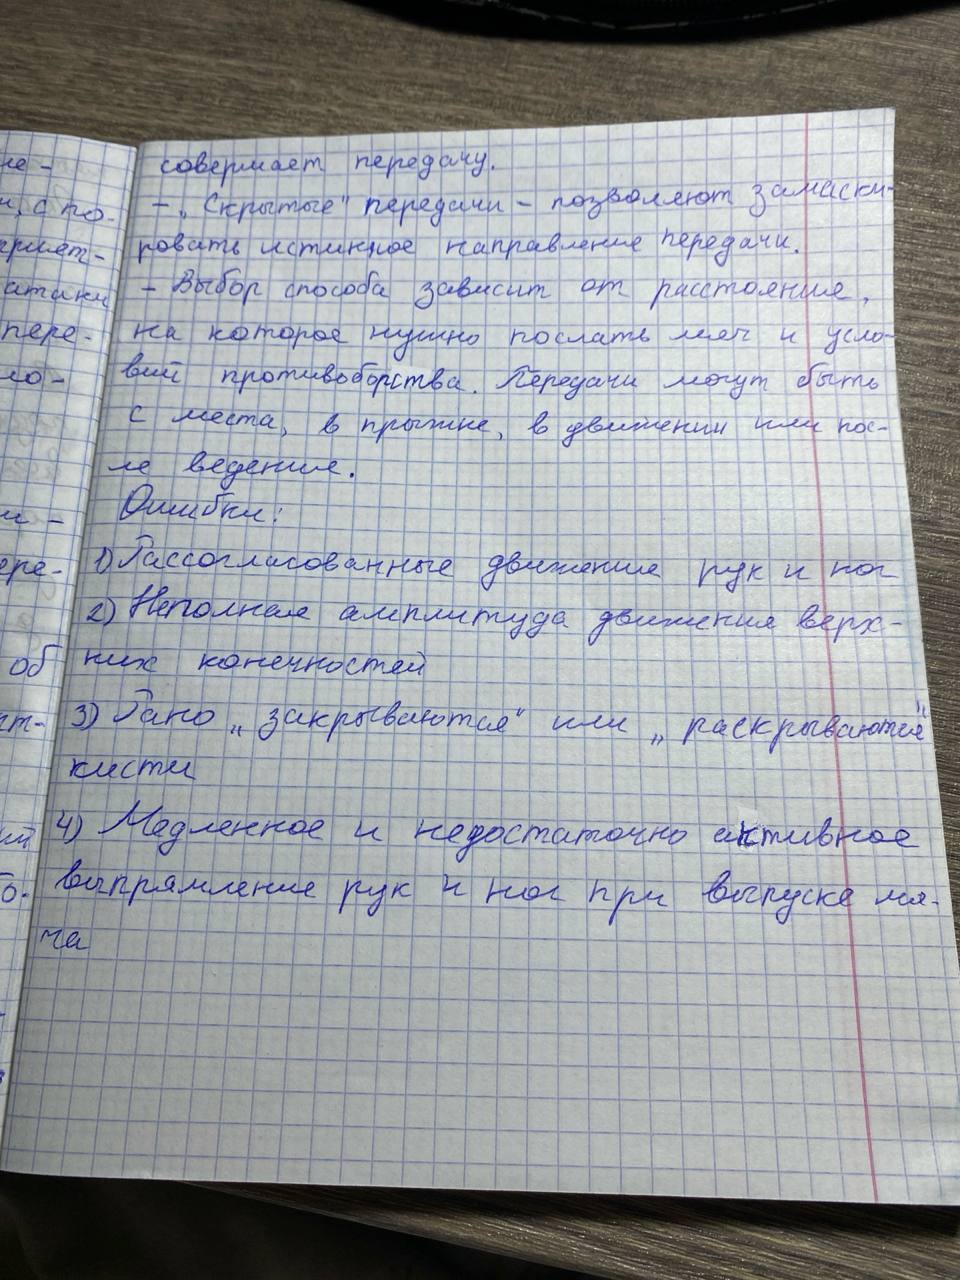 совершает передачу.
- „Скрытые" передачи - позволяют замаски-
ровать истинное направление передачи.
- Выбор способа зависит от расстояние,
на которое нужно послать мяч и усло-
вий противоборства. Передачи могут быть
с места, в прыжке, в движении или пос-
ле ведение.
Ошибки:
1) Рассогласованные движение рук и ног
2) Неполная амплитуда движения верх-
них конечностей
3) Рано „закрываются" или „раскрываются"
кисти
4) Медленное и недостаточно активное
выпрямление рук и ног при выпуске мя-
ча
не-
и, с по-
атаки
пере-
ло-
и -
ере-
об
ий